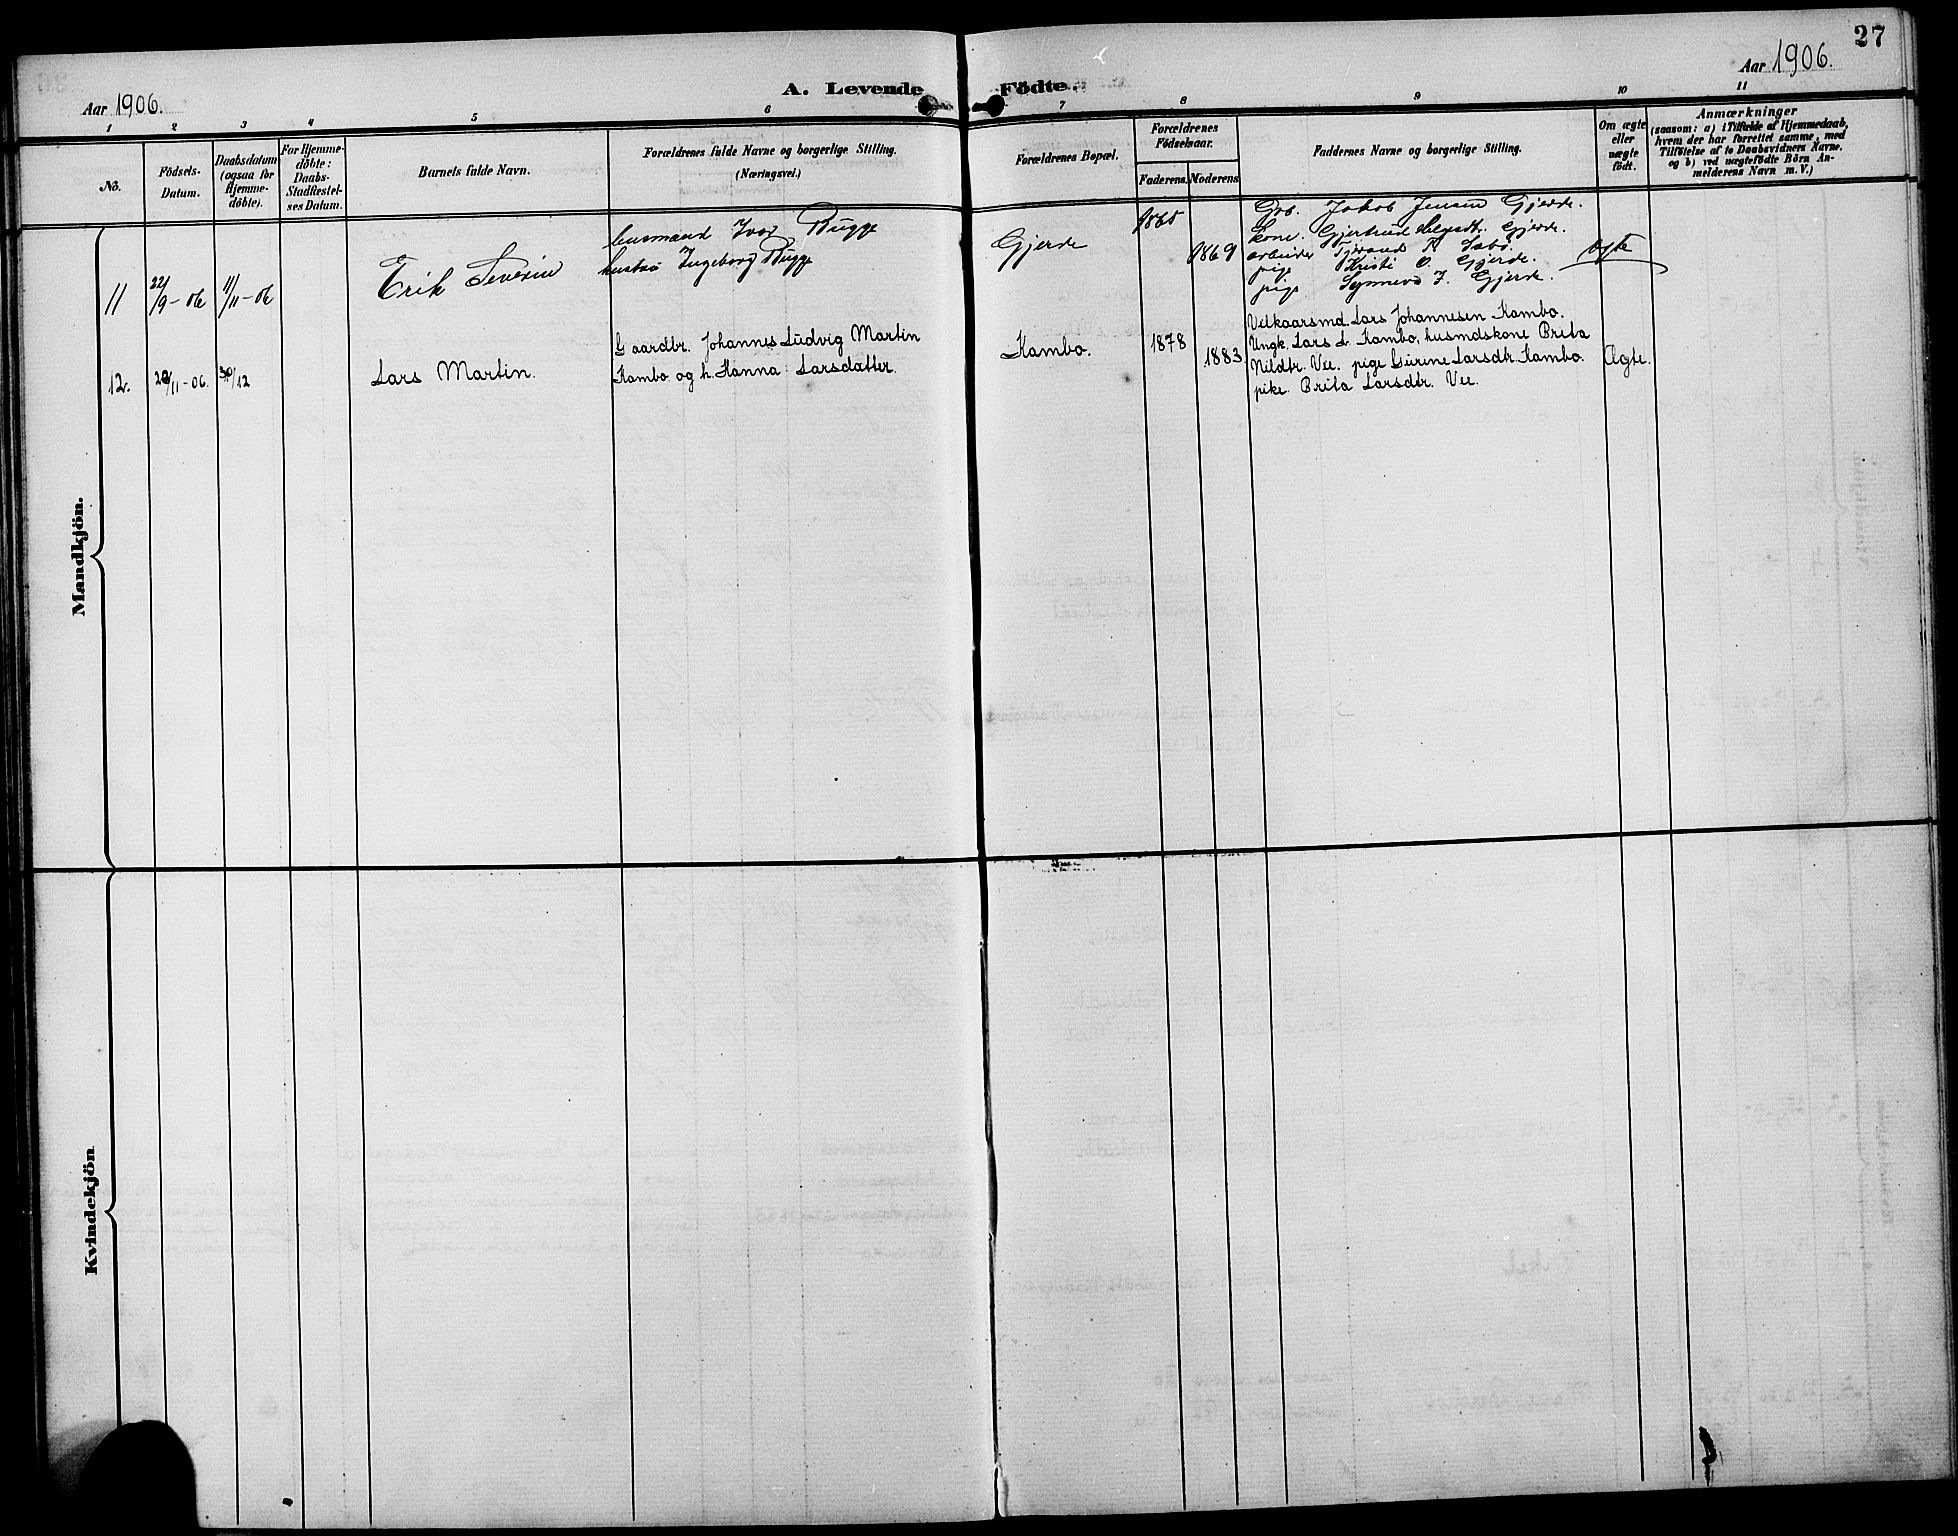 27
Aar 1906.
Aar 1906.
A. Levende Födte.
1 2 3 4 5 6 7 8 9 10 11
No.
Födsels-
Datum.
Daabsdatum
(ogsaa for
Hjemme-
döbte).
For Hjemme-
döbte:
Daabs-
Stadfæstel-
ses Datum.
Barnets fulde Navn.
Forældrenes fulde Navne og borgerlige Stilling.
(Næringsvei.)
Forældrenes Bopæl.
Forældrenes
Födselsaar.
Faderens. Moderens.
Faddernes Navne og borgerlige Stilling.
Om ægte
eller
uægte
födt.
Anmærkninger
(saasom: a) i Tilfælde af Hjemmedaab,
hvem der har forrettet samme, med
Tilföielse af to Daabsvidners Navne.
og b) ved uægtefödte Börn An-
melderens Navn m. V.)
Mandkjön.
11
22/9-06
11/11-06
Erik Severin
husmand Ivar Bugge
hustru Ingeborg Bugge
Gjerde
1865
1869
Grb. Jakob Jensen Gjerde.
Kone. Gjertrud Gjerde.
arbeider
pige Kristi O. Gjerde.
pige Synneva J. Gjerde.
ægte
12.
/11-06.
30/12
Lars Martin.
Gaardbr. Johannes Ludvig Martin
Kambo og h. Hanna Larsdatter.
Kambo.
1878
1883
Velkaarsmd. Lars Johannesen Kambo.
Ungk. Lars L. Kambo, husmdskone Brita
Nildtr. Vee. pige Gurine Larsdtr. Kambo.
pike. Brita Larsdtr. Vee.
Ægte.
Kvindekjön